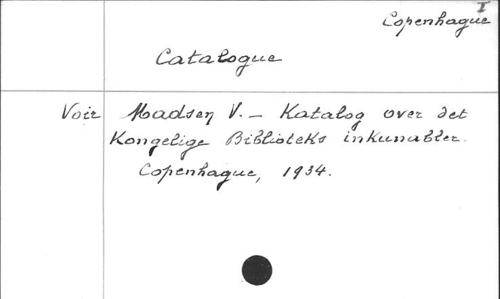 I
Copenhague
Catalogue
Voir Madsen V. — Katalog over det
Kongelige Biblioteks inkunabler.
Copenhague, 1934.